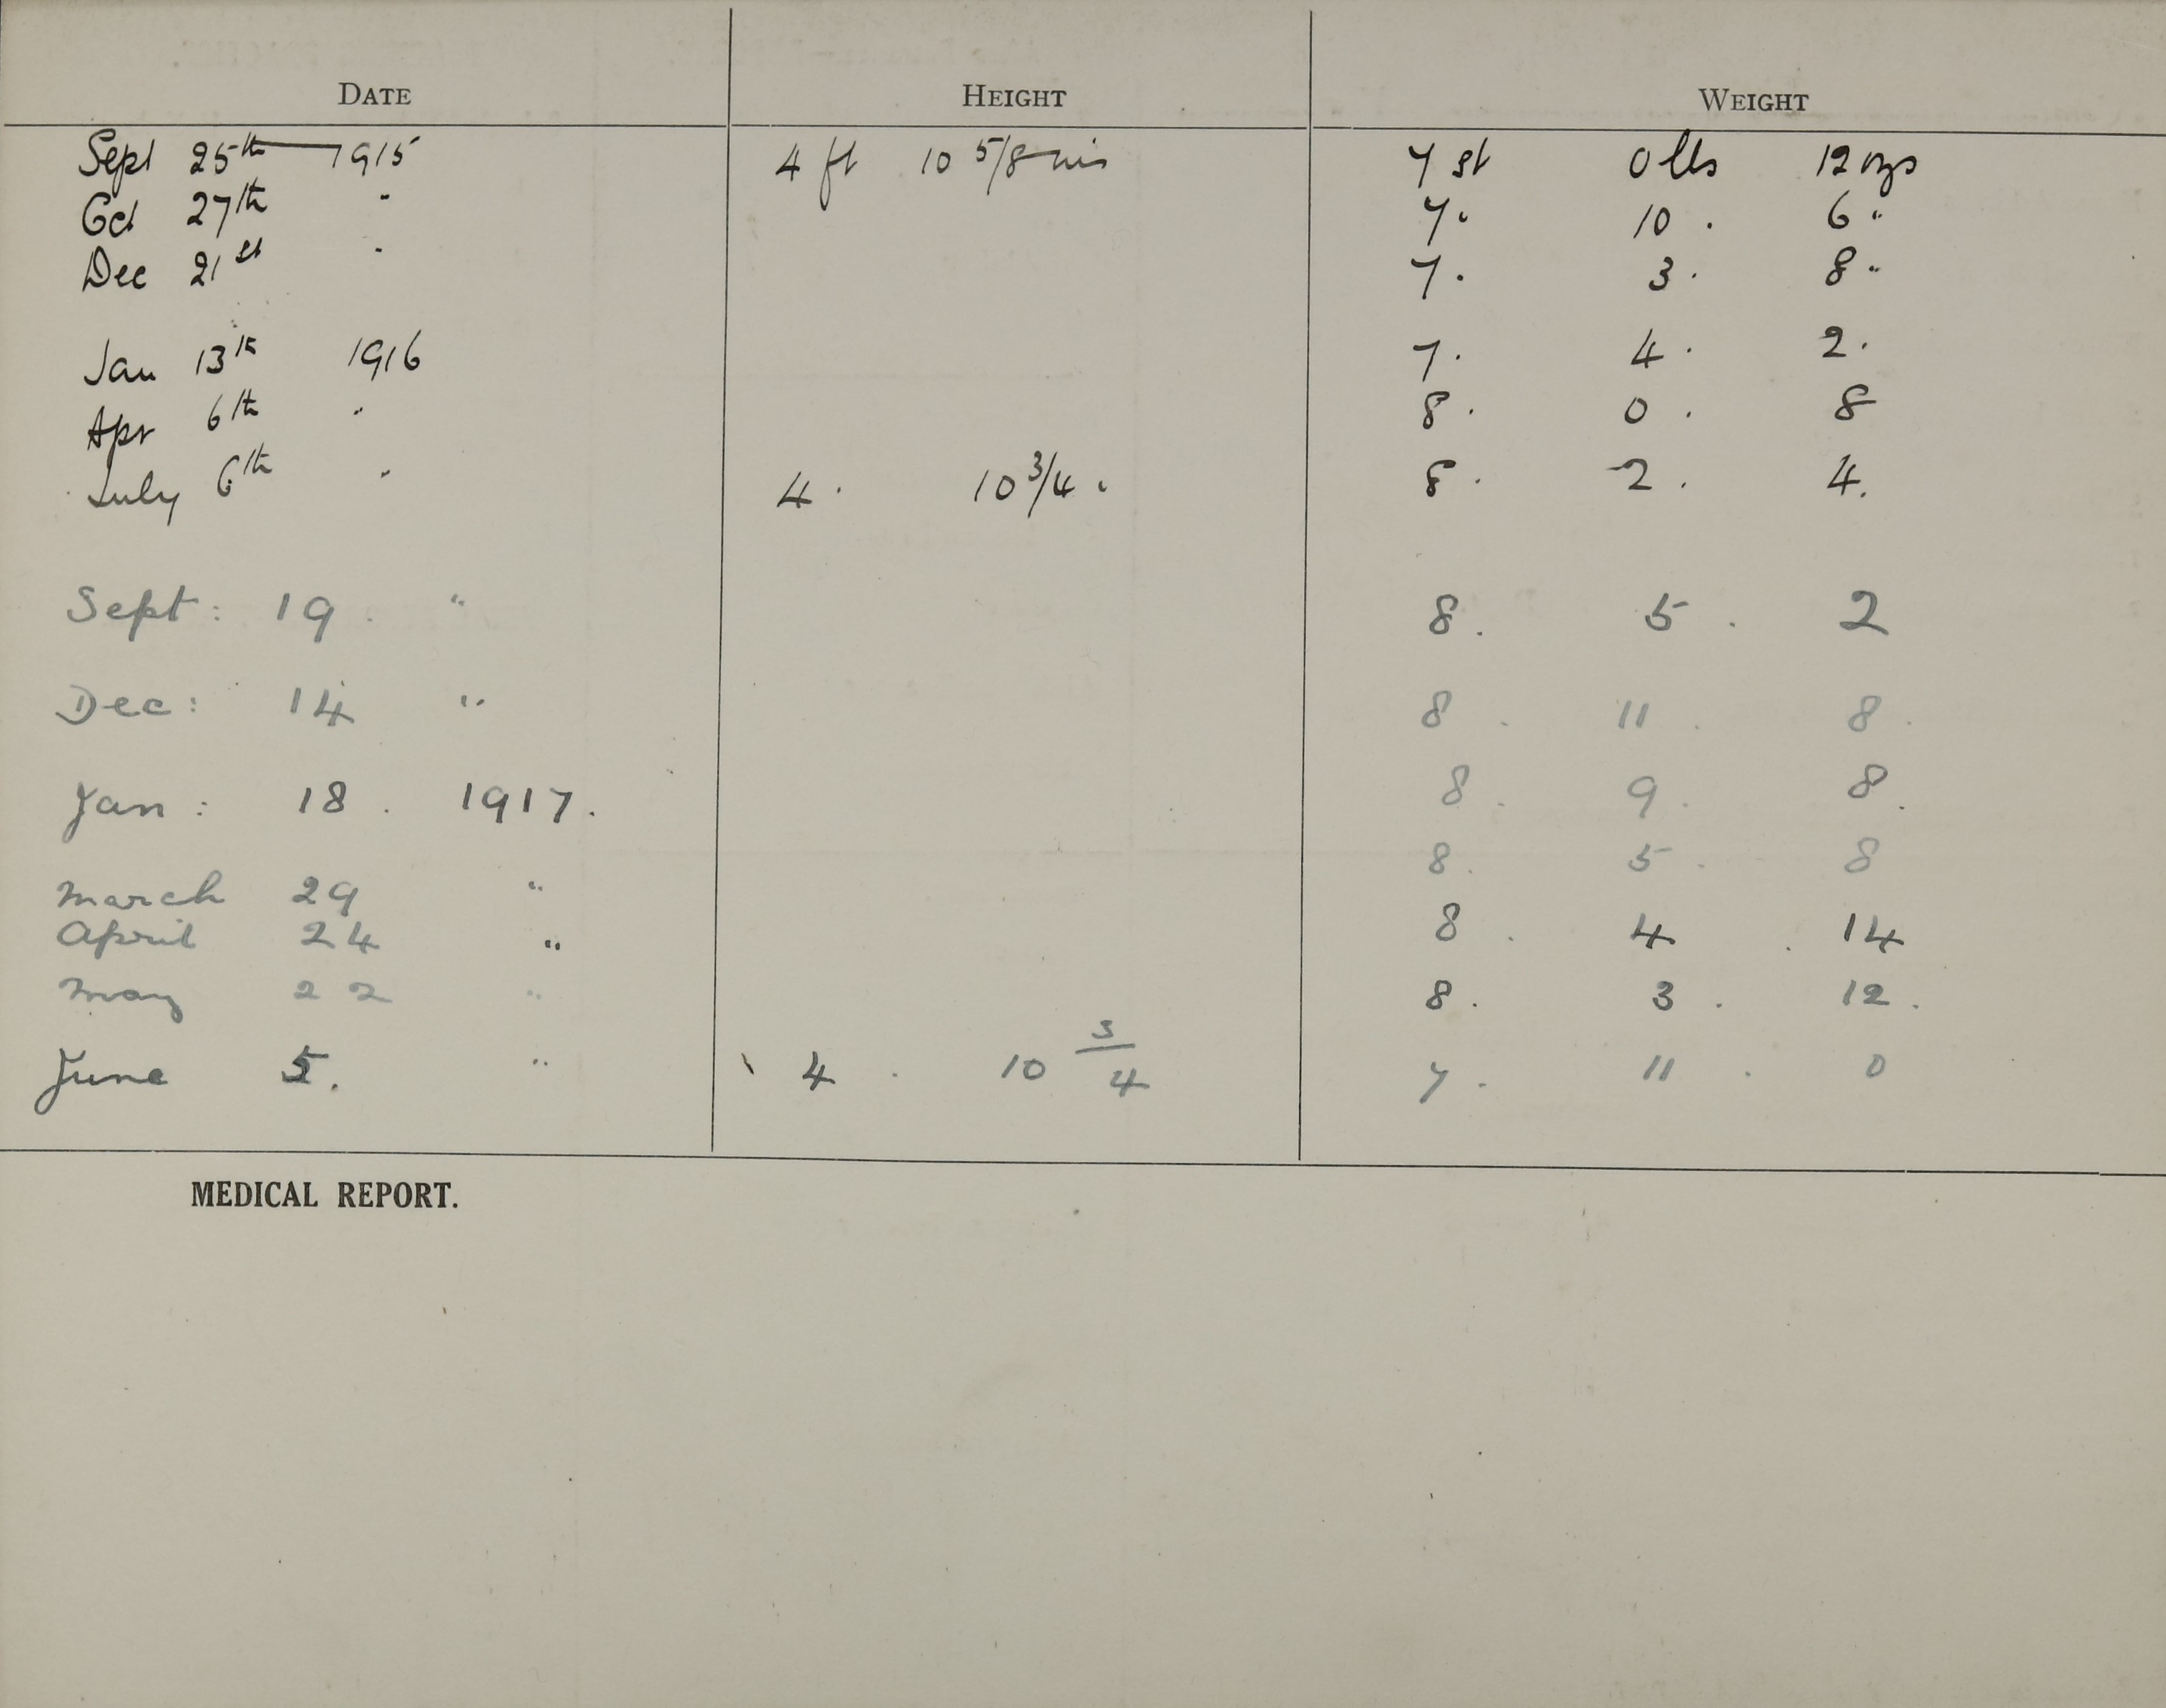 DATE HEIGHT WEIGHT
Sept 25th 1915 4 ft 10 5/8 ins 7 st 0 lbs 12 ozs
Oct 27th " 7 " 10 . 6 "
Dec 21st " 7 . 3 . 8 "
Jan 13th 1916 7 . 4 . 2 .
Apr 6th " 8 . 0 . 8
July 6th " 4 . 10 3/4 " 8 . 2 . 4 .
Sept: 19 . " 8 . 5 . 2
Dec: 14 " 8 . 11 . 8 .
Jan: 18 . 1917. 8 . 9 . 8 .
March 29 " 8 . 5 . 8
April 24 " 8 . 4 . 14
May 22 " 8 . 3 . 12 .
June 5. " 4 . 10 3/4 7 . 11 . 0
MEDICAL REPORT.